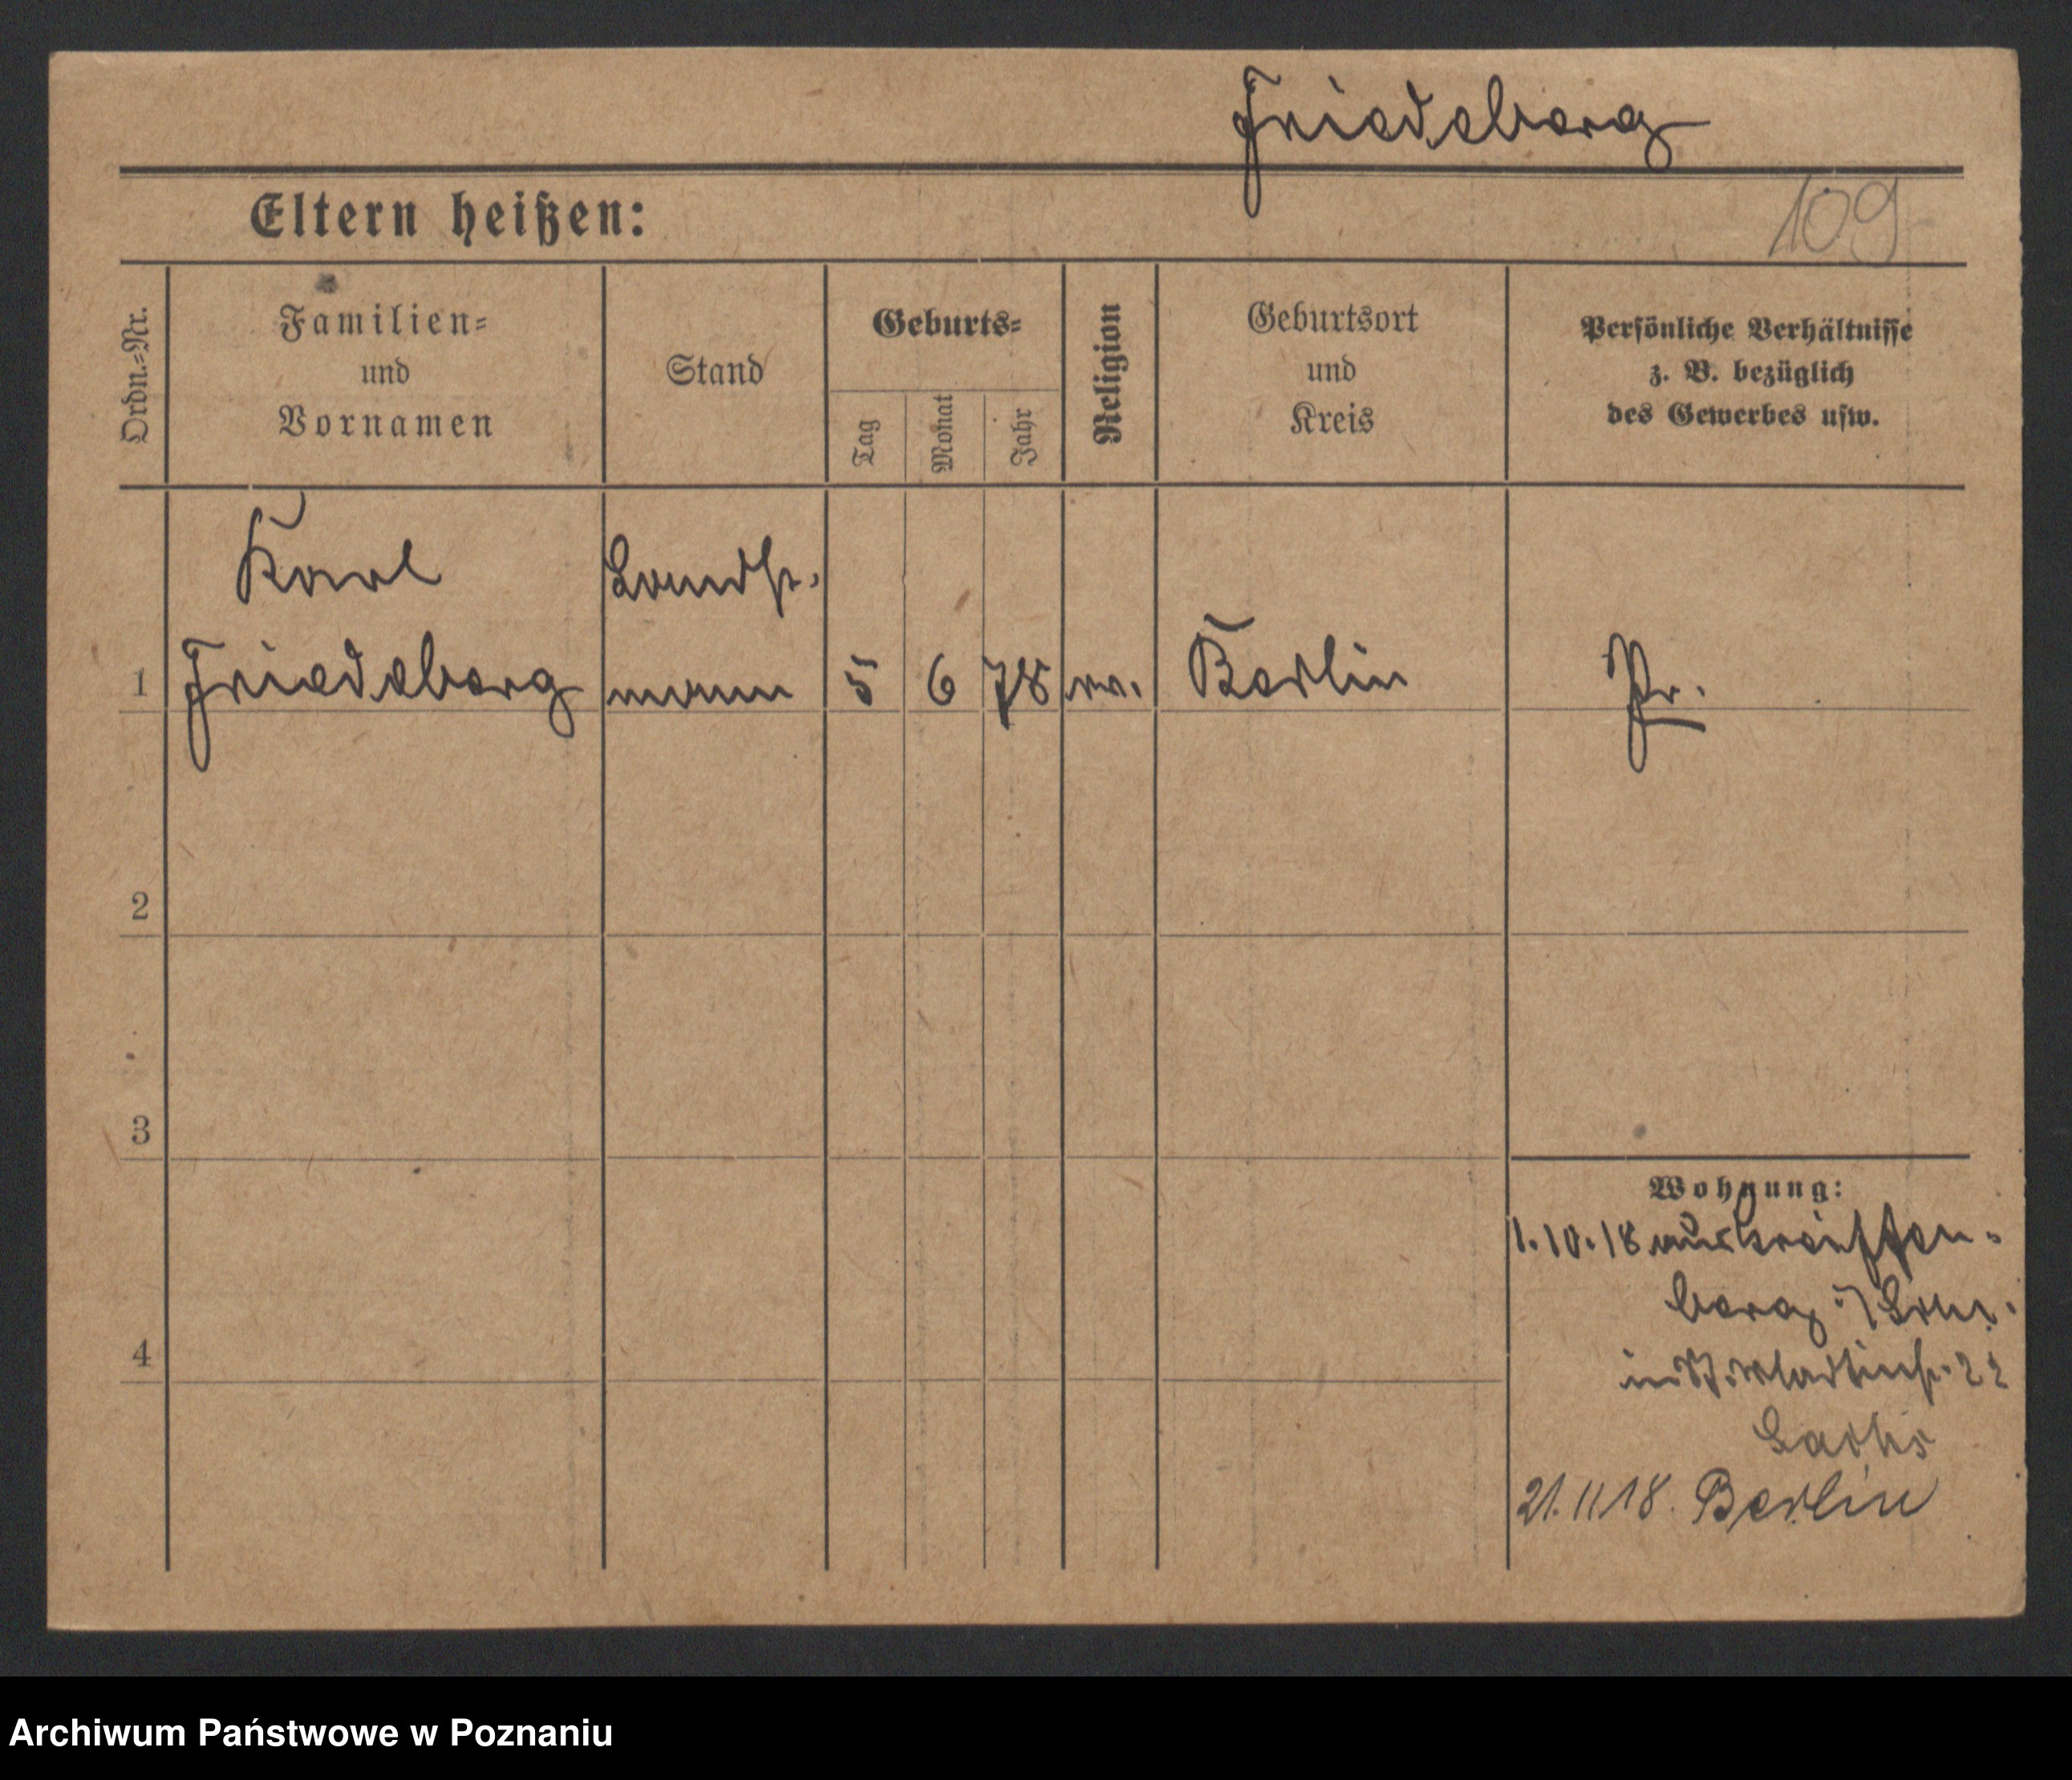 Friedeberg
Eltern heißen:
109
Ordn.-Nr.
Familien-
und
Vornamen
Stand
Geburts-
Tag
Monat
Jahr
Religion
Geburtsort
und
Kreis
Persönliche Verhältnisse
z. B. bezüglich
des Gewerbes usw.
1
Karl
Friedeberg
Landst.
mann
5
6
78
Berlin
Pr.
2
3
4
Wohnung:
1.10.18 aus
berg
in St. Martinstr. 22
21.11.18. Berlin
Archiwum Państwowe w Poznaniu